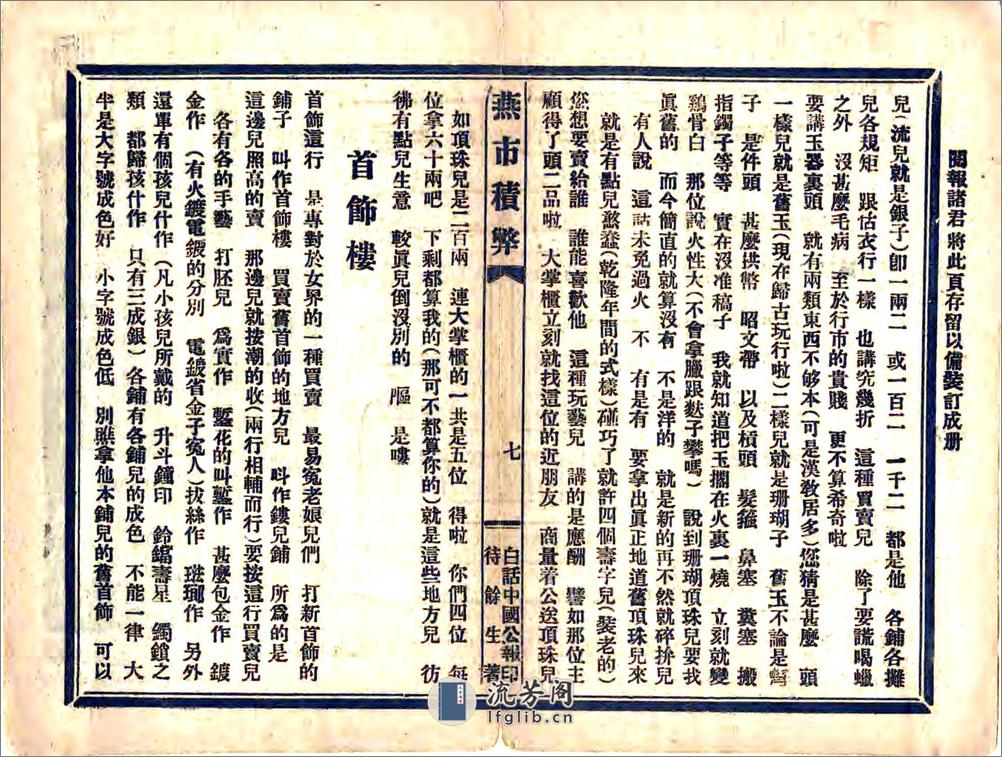 閱報諸君將此頁存留以備裝訂成册
兒(流兒就是銀子)卽一兩二 或一百二 一千二 都是他 各鋪各攤
兒各規矩 跟估衣行一樣 也講究幾折 這種買賣兒 除了要謊喝蠟
之外 沒甚麼毛病 至於行市的貴賤 更不算希奇啦
要講玉器裏頭 就有兩類東西不够本(可是漢敎居多)您猜是甚麼 頭
一樣兒就是舊玉(現在歸古玩行啦)二樣兒就是珊瑚子 舊玉不論是
子 是件頭 甚麼拱幣 昭文帶 以及槓頭 髮箍 鼻塞 糞塞 搬
指鐲子等等 實在沒准稿子 我就知道把玉擱在火裏一燒 立刻就變
鷄骨白 那位說火性大(不會拿臘跟麩子攀嗎) 說到珊瑚頂珠兒要我
眞舊的 而今簡直的就算沒有 不是洋的 就是新的再不然就碎拚兒
有人說 這話未免過火 不 有是有 要拿出眞正地道舊頂珠兒來
就是有點兒憨蠢(乾隆年間的式樣)碰巧了就許四個壽字兒(裝老的)
您想要賣給誰 誰能喜歡他 這種玩藝兒 講的是應酬 譬如那位主
顧得了頭二品啦 大掌櫃立刻就找這位的近朋友 商量着公送頂珠兒
燕市積弊
七
白話中國公報印
待餘生著
如頂珠兒是二百兩 連大掌櫃的一共是五位 得啦 你們四位 每
位拿六十兩吧 下剩都算我的(那可不都算你的)就是這些地方兒 彷
彿有點兒生意 較眞兒倒沒別的 嘔 是嘍
首飾樓
首飾這行 是專對於女界的一種買賣 最易冤老娘兒們 打新首飾的
鋪子 叫作首飾樓 買賣舊首飾的地方兒 叫作鏤兒鋪 所爲的是
這邊兒照高的賣 那邊兒就按潮的收(兩行相輔而行)要按這行買賣兒
各有各的手藝 打胚兒 爲實作 鏨花的叫鏨作 甚麼包金作 鍍
金作 (有火鍍電鍍的分別 電鍍省金子冤人)拔絲作 琺瑯作 另外
還單有個孩兒什作(凡小孩兒所戴的 升斗鐘印 鈴鐺壽星 鐲鎖之
類 都歸孩什作 只有三成銀)各鋪有各鋪兒的成色 不能一律 大
半是大字號成色好 小字號成色低 別瞧拿他本鋪兒的舊首飾 可以
流芳阁
lfglib.cn